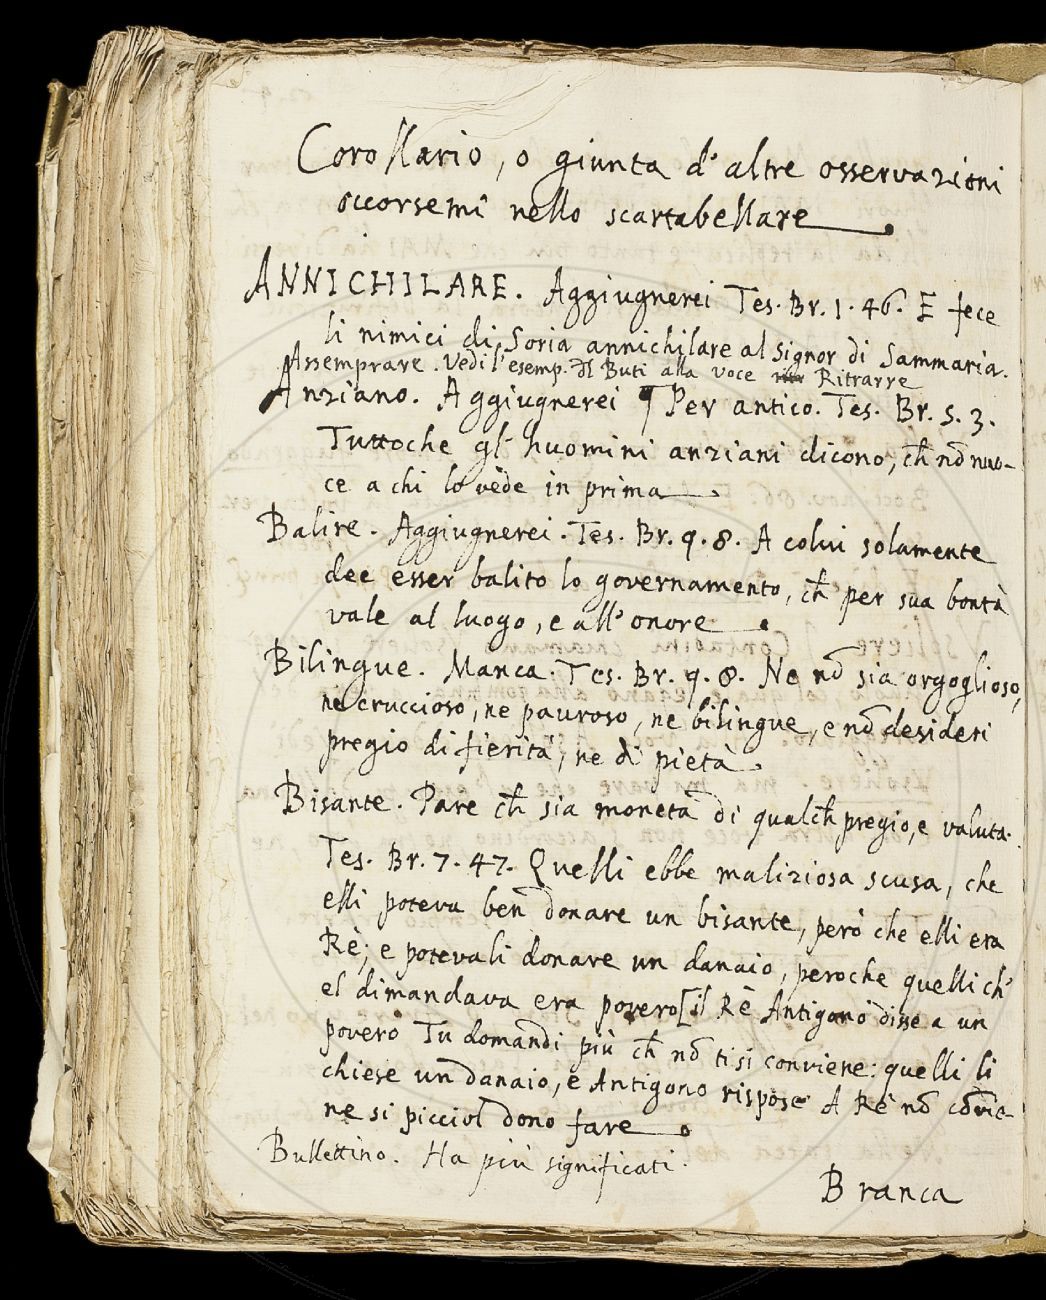 Corollario, o giunta d'altre osservazioni
occorsemi nello scartabellare
ANNICHILARE. Aggiugnerei Tes. Br. 1. 46. E fece
li nimici di Soria annichilare al Signor di Sammaria.
Assemprare. Vedi l'esemp. dl Buti alla voce Ritrarre
Anziano. Aggiugnerei ¶ Per antico. Tes. Br. 5. 3.
Tuttoche gl' huomini anziani dicono, ch̄ nō nuo-
ce a chi lo vede in prima.
Balire. Aggiugnerei. Tes. Br. 9. 8. A colui solamente
dee esser balito lo governamento, ch̄ per sua bontà
vale al luogo, e all' onore.
Bilingue. Manca. Tes. Br. 9. 8. Ne nō sia orgoglioso,
nè cruccioso, ne pauroso, ne bilingue, e nō desideri
pregio di fierità, ne di pietà.
Bisante. Pare ch̄ sia moneta di qualch̄ pregio, e valuta.
Tes. Br. 7. 47. Quelli ebbe maliziosa scusa, che
elli poteva ben donare un bisante, però che elli era
Rè; e potevali donare un danaio, peroche quelli ch'
el dimandava era povero [il Rè Antigono disse a un
povero Tu domandi più ch̄ nō ti si conviene: quelli li
chiese un danaio, e Antigono rispose A Rè nō cōvie-
ne si picciol dono fare.
Bullettino. Ha più significati.
Branca